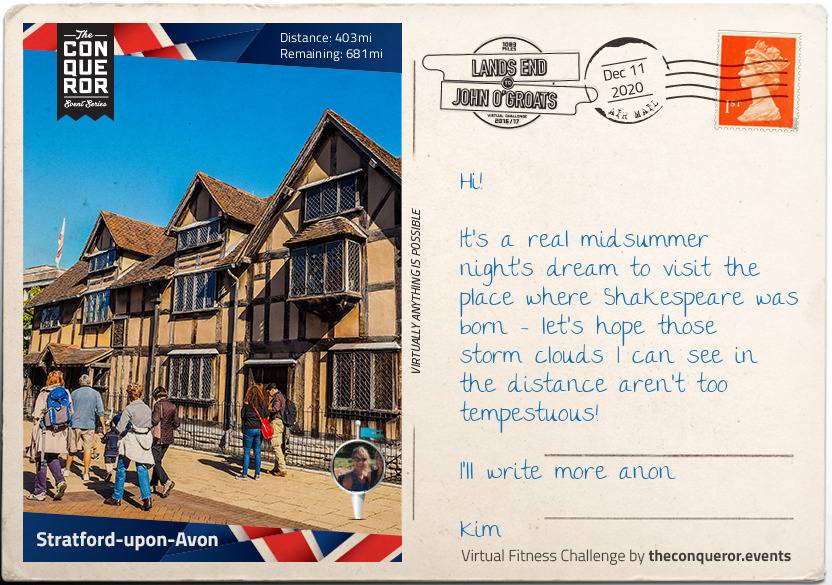 The
CON
QUE
ROR
Event Series
Distance: 403mi
Remaining: 681mi
Stratford-upon-Avon
VIRTUALLY ANYTHING IS POSSIBLE
1083
MILES
LANDS END
TO
JOHN O'GROATS
VIRTUAL CHALLENGE
2016/17
Dec 11
2020
AIR MAIL
1st
Hi!
It's a real midsummer
night's dream to visit the
place where Shakespeare was
born - let's hope those
storm clouds I can see in
the distance aren't too
tempestuous!
I'll write more anon
Kim
Virtual Fitness Challenge by theconqueror.events